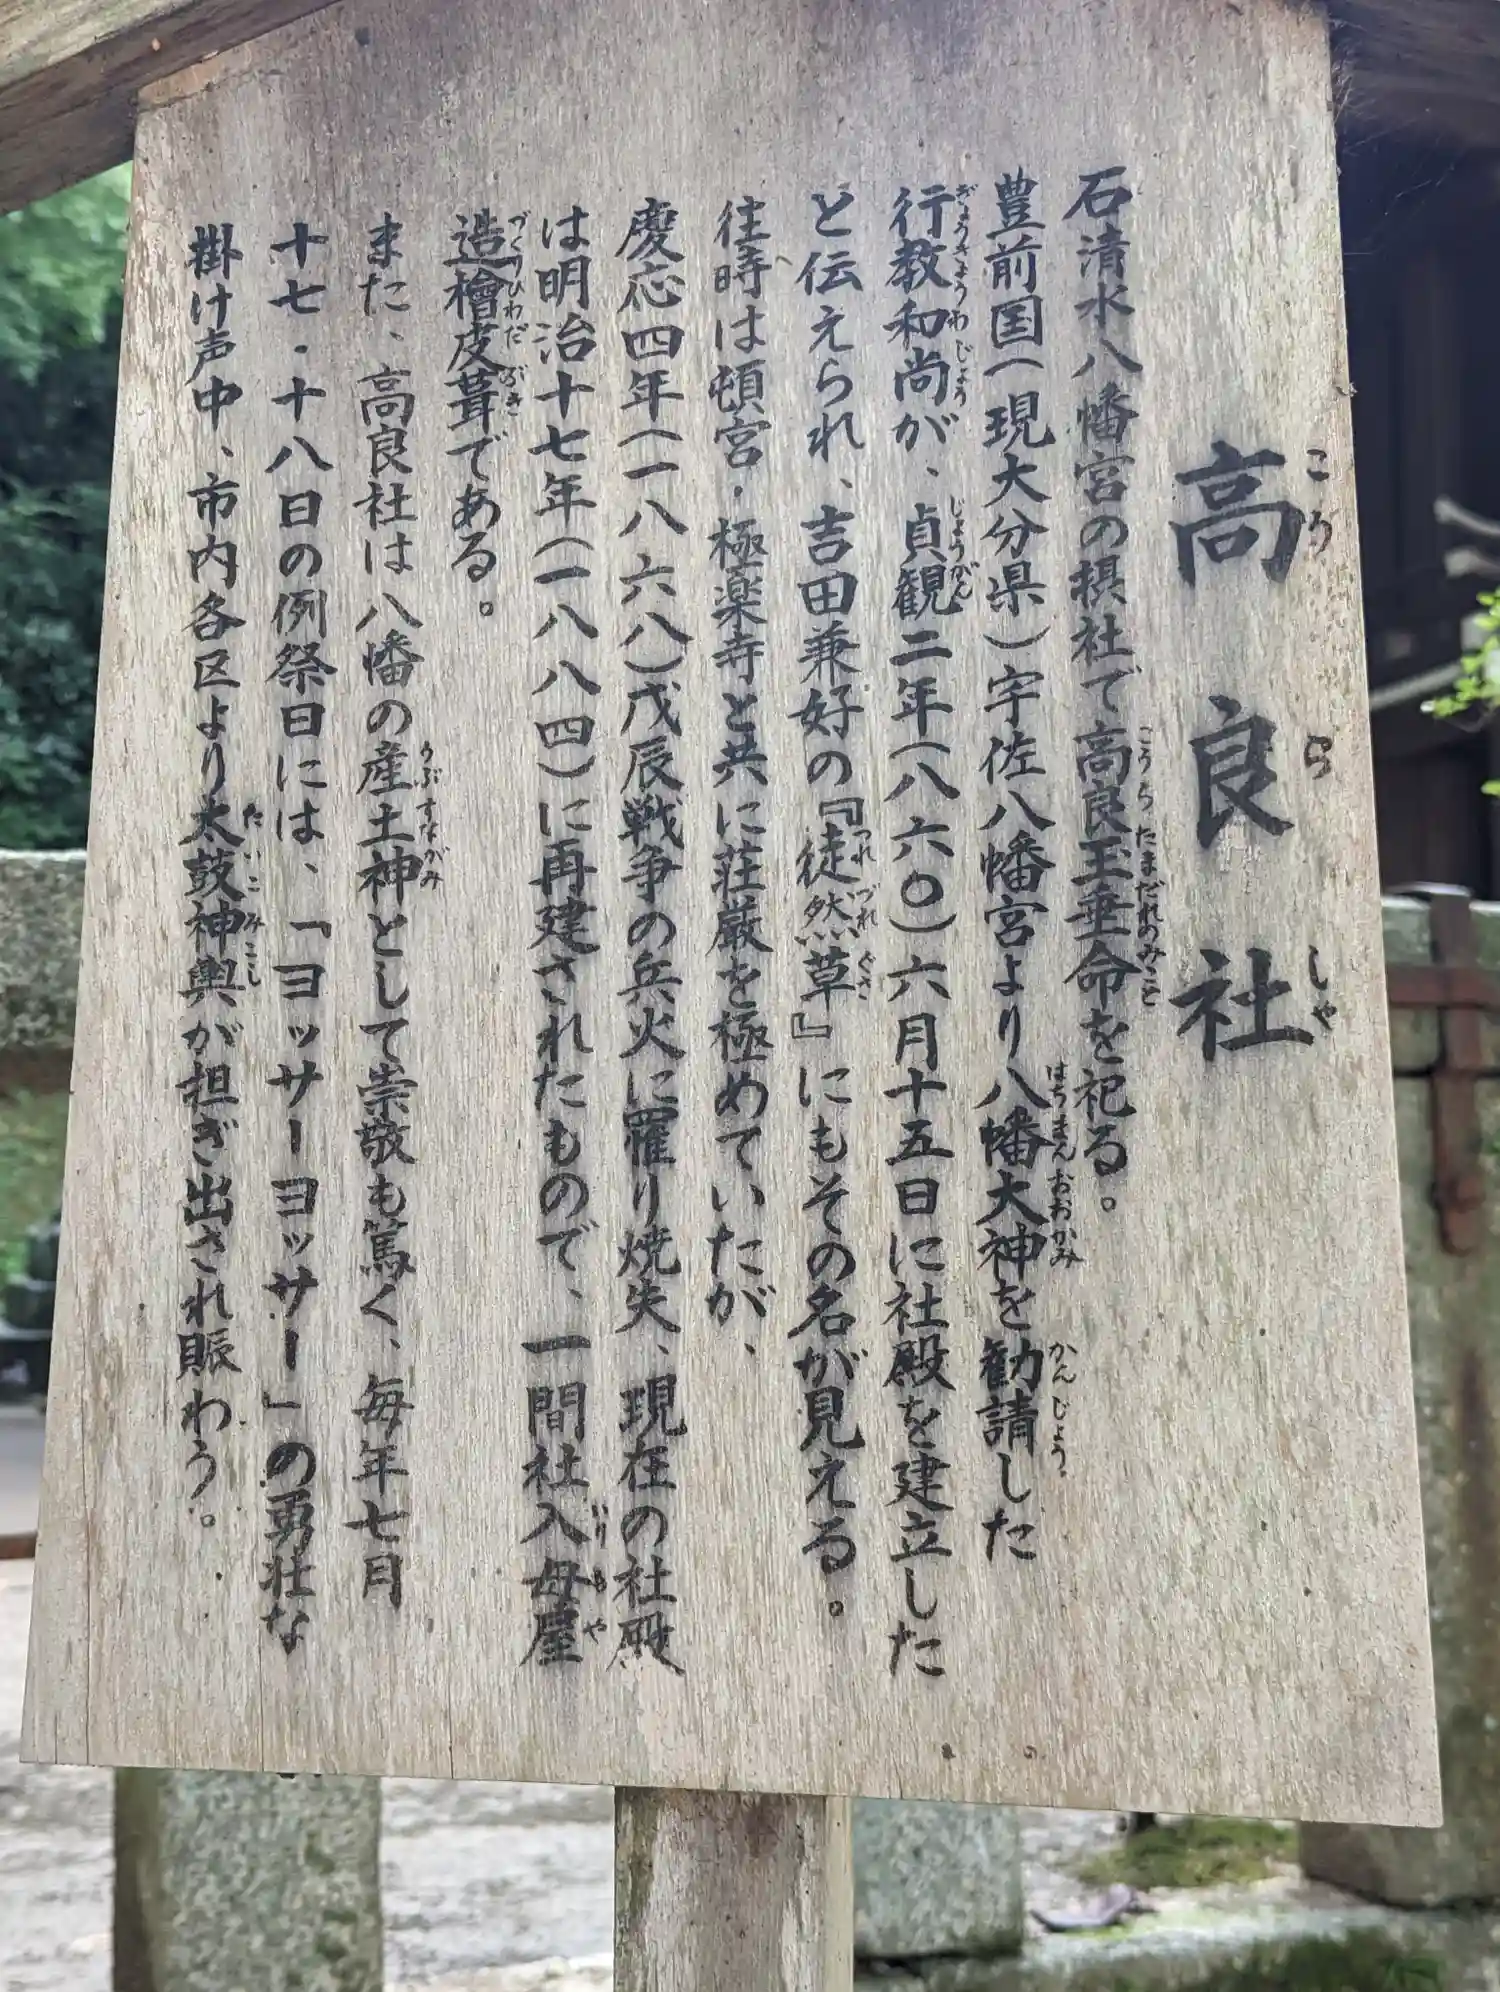 高良社
石清水八幡宮の摂社で高良玉垂命を祀る。
豊前国(現大分県)宇佐八幡宮より八幡大神を勧請した
行教和尚が、貞観二年(八六〇)六月十五日に社殿を建立した
と伝えられ、吉田兼好の『徒然草』にもその名が見える。
往時は頓宮・極楽寺と共に荘厳を極めていたが、
慶応四年(一八六八)戊辰戦争の兵火に罹り焼失、現在の社殿
は明治十七年(一八八四)に再建されたもので、一間社入母屋
造檜皮葺である。
また、高良社は八幡の産土神として崇敬も篤く、毎年七月
十七・十八日の例祭日には、「ヨッサーヨッサー」の勇壮な
掛け声中、市内各区より太鼓神輿が担ぎ出され賑わう。